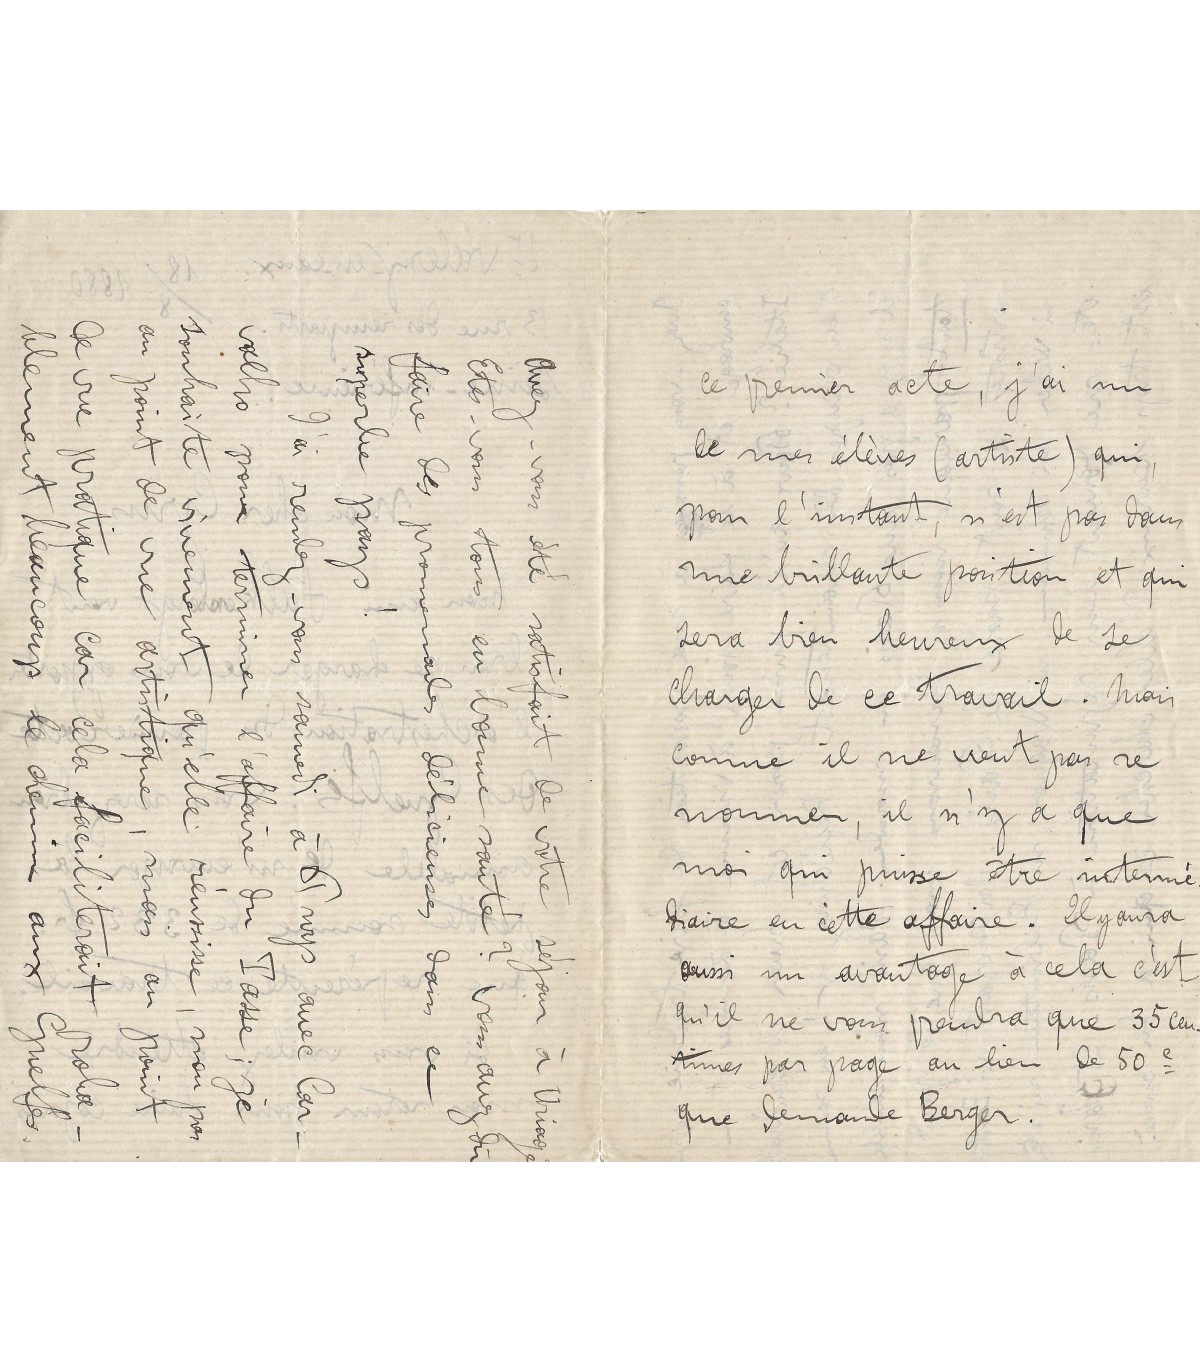 ce premier acte, j'ai un
de mes élèves (artiste) qui,
pour l'instant, n'est pas dans
une brillante position et qui
sera bien heureux de se
charger de ce travail. Mais
comme il ne veut pas se
nommer, il n'y a que
moi qui puisse être intermé-
diaire en cette affaire. Il y aura
aussi un avantage à cela c'est
qu'il ne vous prendra que 35 cen-
times par page au lieu de 50 c
que demande Berger.
Avez-vous été satisfait de votre séjour à Uriage
Etes-vous tous en bonne santé? vous avez dû
faire des promenades délicieuses dans ce
superbe pays!
J'ai rendez-vous samedi à 6h avec Car-
valho pour terminer l'affaire du Tasse; je
souhaite vivement qu'elle réussisse, non pas
au point de vue artistique, mais au point
de vue pratique car cela faciliterait proba-
blement beaucoup le chemin aux Guelfes.